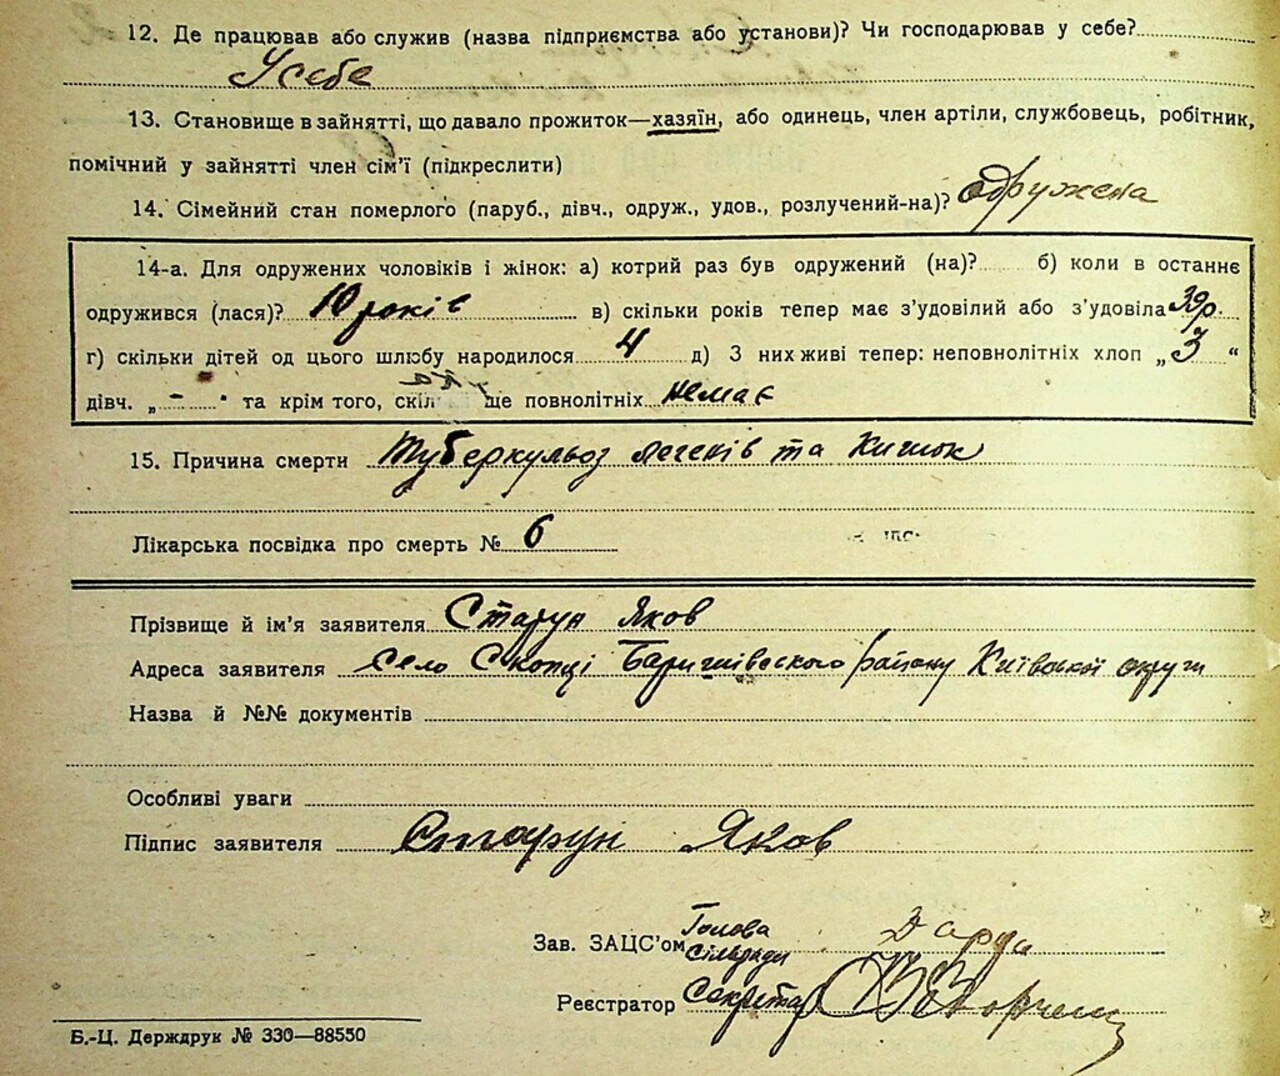 12. Де працював або служив (назва підприємства або установи)? Чи господарював у себе?
У себе
13. Становище в зайнятті, що давало прожиток—хазяїн, або одинець, член артіли, службовець, робітник,
помічний у зайнятті член сім'ї (підкреслити)
14. Сімейний стан померлого (паруб., дівч., одруж., удов., розлучений-на)? одружена
14-а. Для одружених чоловіків і жінок: а) котрий раз був одружений (на)? б) коли в останнє
одружився (лася)? 10 років в) скільки років тепер має з'удовілий або з'удовіла 39 р.
г) скільки дітей од цього шлюбу народилося 4 д) З них живі тепер: неповнолітніх хлоп „3“
дівч. „ - " та крім того, скіл ще повнолітніх немає
15. Причина смерти Туберкульоз легенів та Кишок
Лікарська посвідка про смерть № 6
Прізвище й ім'я заявителя Старун Яков
Адреса заявителя село Скопці Баришівського району Київської округи
Назва й №№ документів
Особливі уваги
Підпис заявителя Старун Яков
Зав. ЗАЦС'ом Голова сільради
Реєстратор Секретар
Б.-Ц. Держдрук № 330—88550